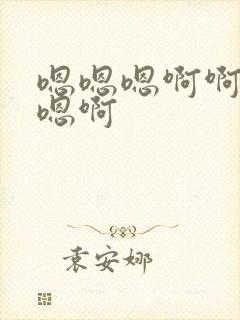 嗯嗯嗯啊啊
嗯啊
袁安娜